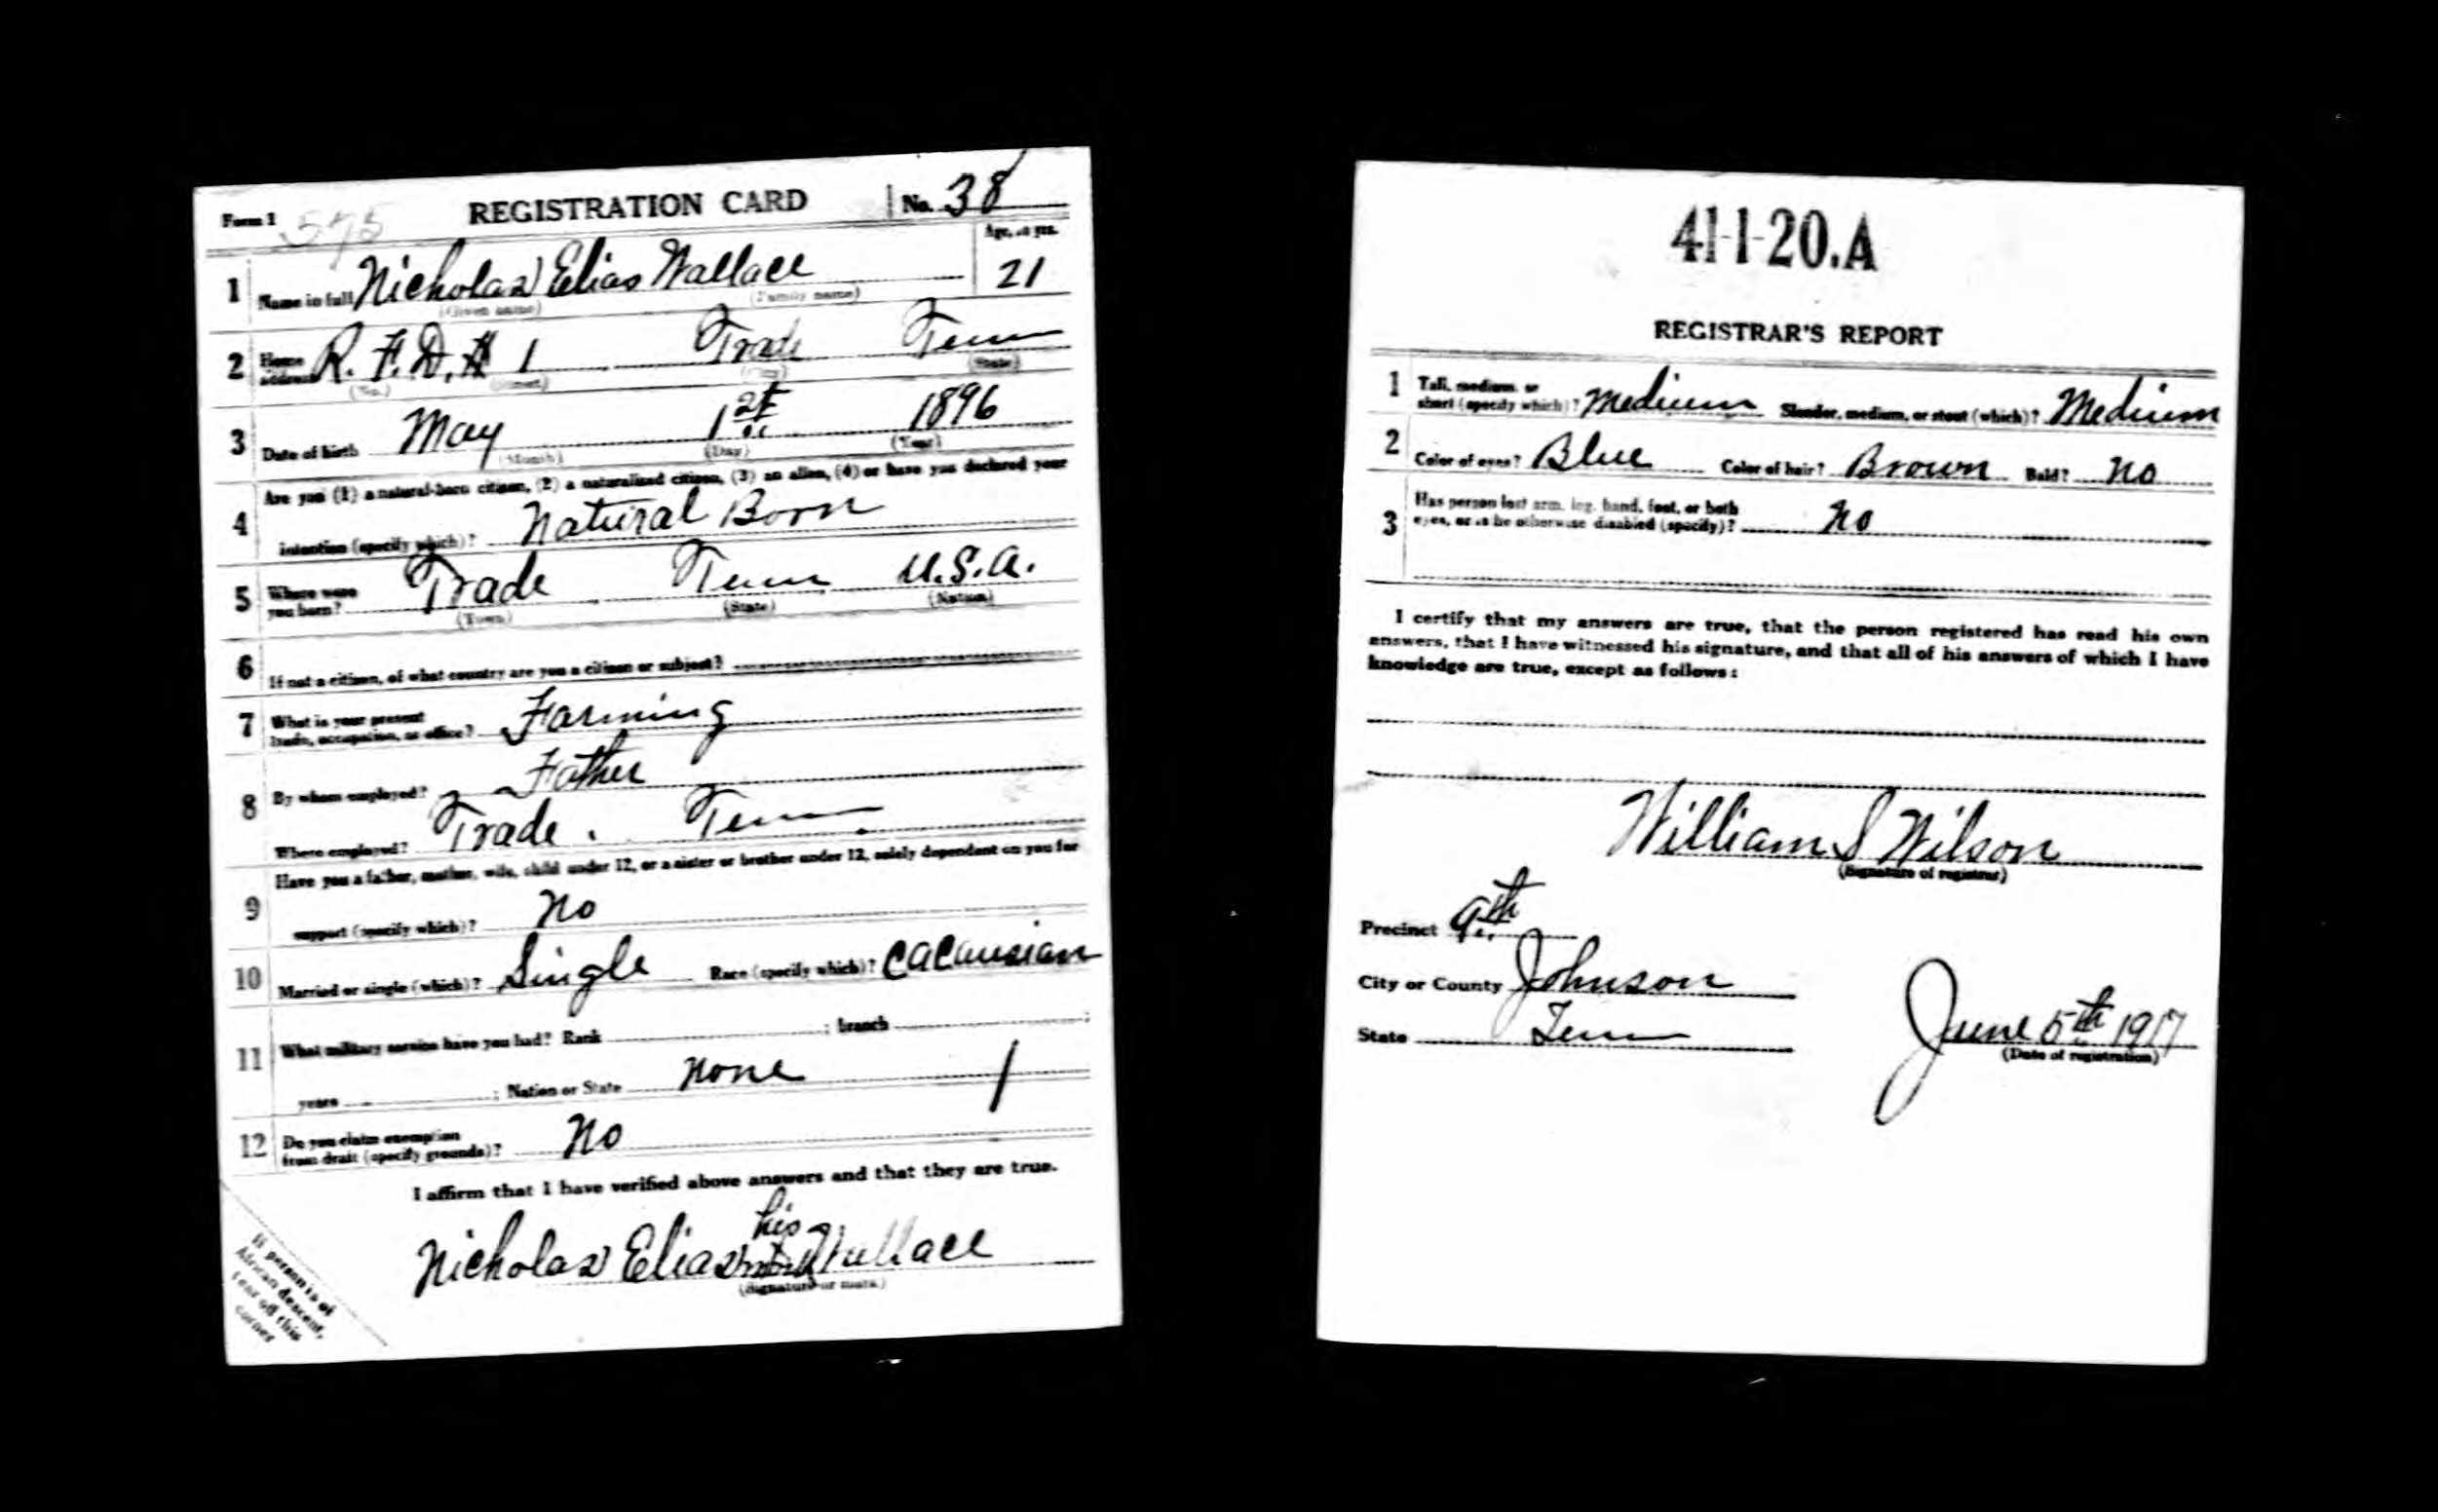 Form 1 575 REGISTRATION CARD No. 38
Age, in yrs.
1 Name in full Nicholas Elias Wallace 21
(Given name) (Family name)
2 Home address R. F. D. # 1 Trade Tenn
(No.) (Street) (City) (State)
3 Date of birth May 1st 1896
(Month) (Day) (Year)
4 Are you (1) a natural-born citizen, (2) a naturalized citizen, (3) an alien, (4) or have you declared your
intention (specify which)? Natural Born
5 Where were you born? Trade Tenn U.S.A.
(Town) (State) (Nation)
6 If not a citizen, of what country are you a citizen or subject?
7 What is your present
trade, occupation, or office? Farming
8 By whom employed? Father
Where employed? Trade. Tenn
9 Have you a father, mother, wife, child under 12, or a sister or brother under 12, solely dependent on you for
support (specify which)? No
10 Married or single (which)? Single Race (specify which)? Cacausian
11 What military service have you had? Rank ; branch ;
years ; Nation or State None
12 Do you claim exemption
from draft (specify grounds)? No
I affirm that I have verified above answers and that they are true.
his
Nicholas Elias mark Wallace
(Signature or mark)
If person is of
African descent,
tear off this
corner
41-1-20.A
REGISTRAR'S REPORT
1 Tall, medium, or
short (specify which)? Medium Slender, medium, or stout (which)? Medium
2 Color of eyes? Blue Color of hair? Brown Bald? No
3 Has person lost arm, leg, hand, foot, or both
eyes, or is he otherwise disabled (specify)? No
I certify that my answers are true, that the person registered has read his own
answers, that I have witnessed his signature, and that all of his answers of which I have
knowledge are true, except as follows:
William S Wilson
(Signature of registrar)
Precinct 9th
City or County Johnson
State Tenn
June 5th 1917
(Date of registration)